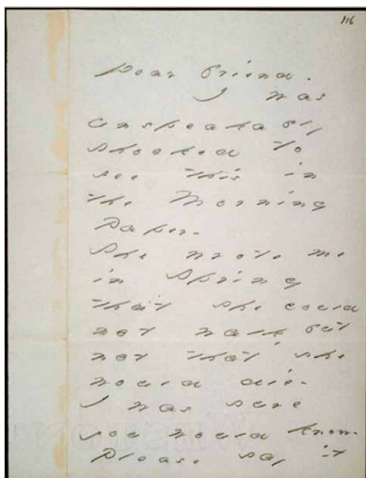 116
Dear friend.
I was
unspeakably
shocked to
see this in
the Morning
Paper.
She wrote me
in Spring
that she could
not walk but
not that she
would die.
I was sure
you would know.
Please say it